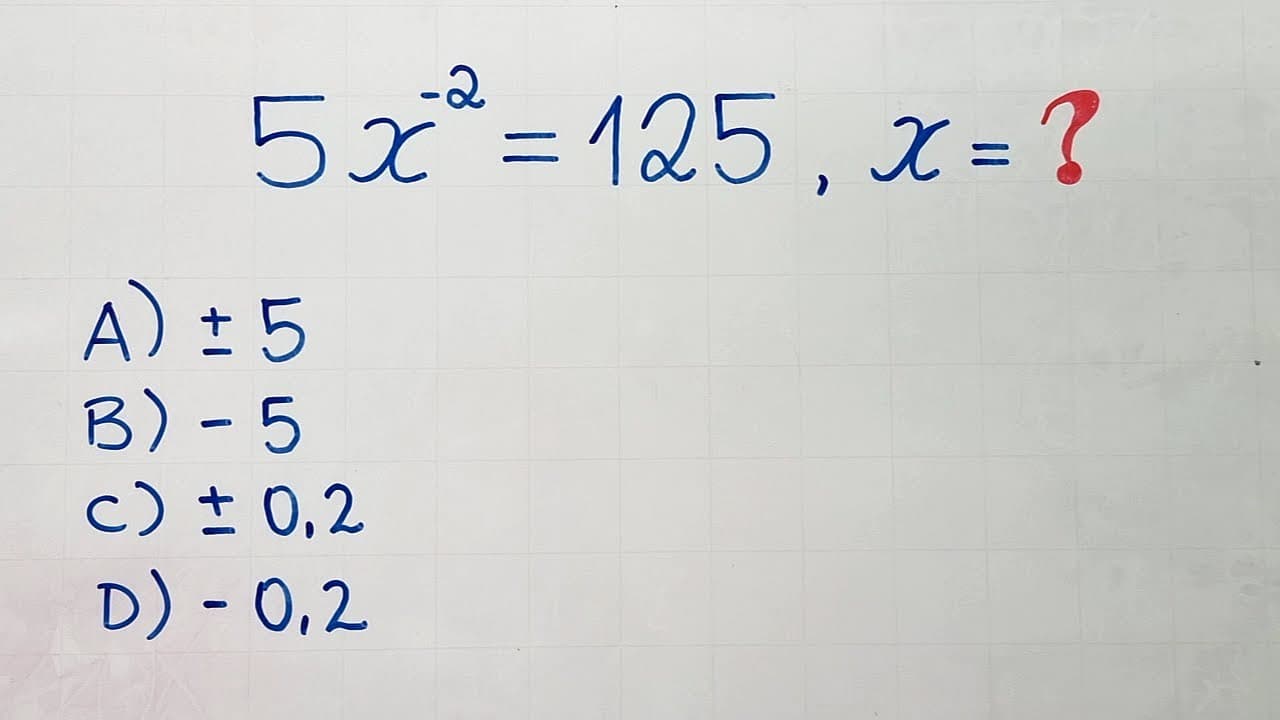 5x⁻² = 125, x = ?
A) ± 5
B) - 5
C) ± 0,2
D) - 0,2